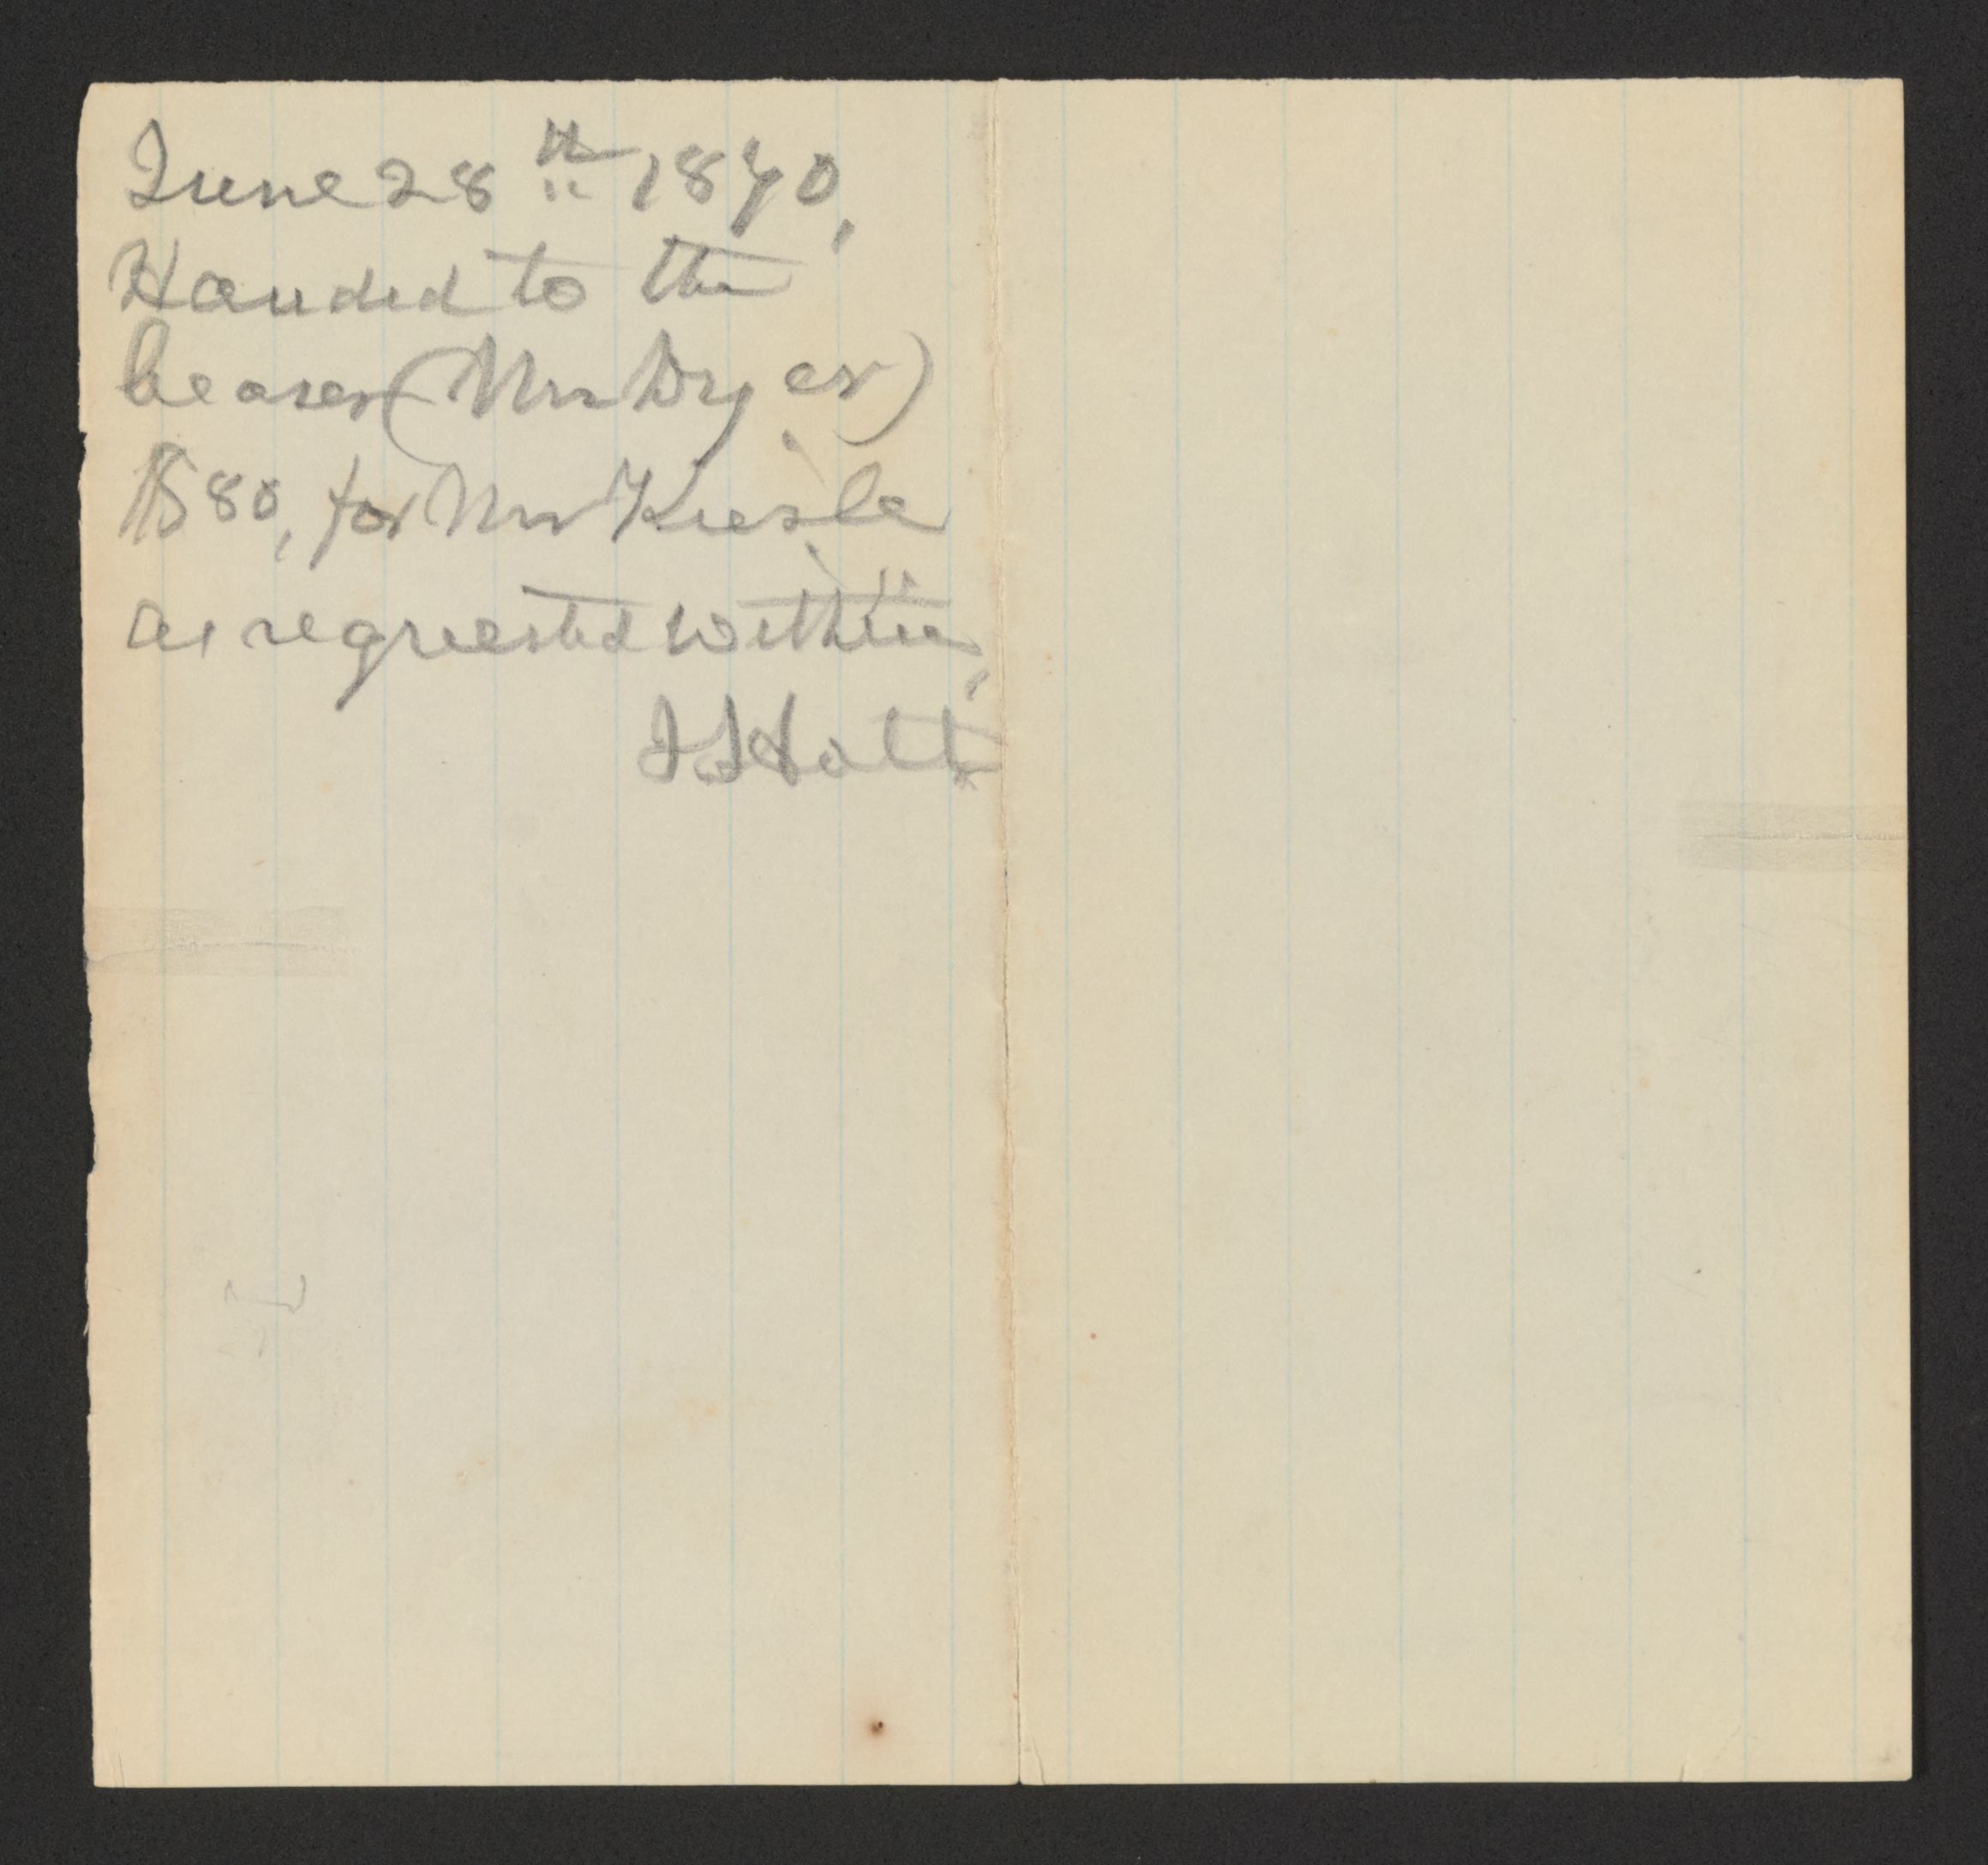 June 28th 1870,
Handed to the
bearer (Mr Dyer)
$80, for Mr
as requested within,